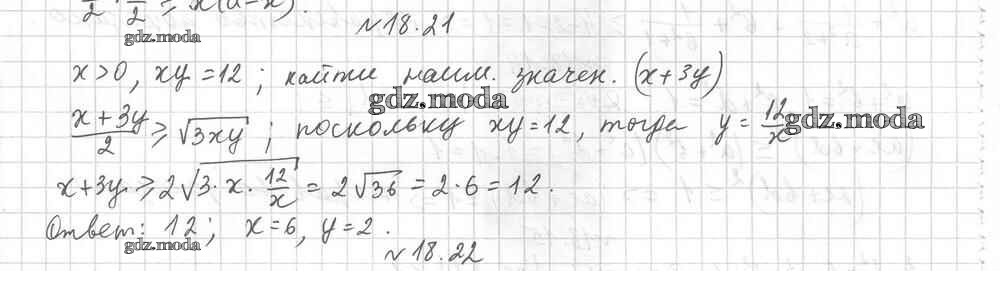 a/2 · a/2 ≥ x(a-x).
gdz.moda
№18.21
x>0, xy=12; найти наим. значен. (x+3y)
gdz.moda
(x+3y)/2 ≥ √3xy; поскольку xy=12, тогда y=12/x
gdz.moda
x+3y ≥ 2√3·x·12/x = 2√36 = 2·6 = 12.
Ответ: 12; x=6, y=2.
gdz.moda
№18.22
gdz.moda